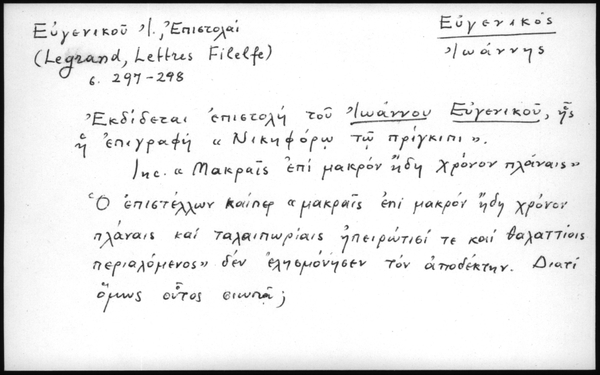 Εὐγενικοῦ Ἰ., Ἐπιστολαί
(Legrand, Lettres Filelfe)
σ. 297-298
Εὐγενικός
Ἰωάννης
Ἐκδίδεται ἐπιστολή τοῦ Ἰωάννου Εὐγενικοῦ, ἧς
ἡ ἐπιγραφή « Νικηφόρῳ τῷ πρίγκιπι ».
Inc. « Μακραῖς ἐπί μακρόν ἤδη χρόνον πλάναις»
Ὁ ἐπιστέλλων καίπερ « μακραῖς ἐπί μακρόν ἤδη χρόνον
πλάναις καί ταλαιπωρίαις ἠπειρώτισί τε καί θαλαττίοις
περιαλόμενος» δέν ἐλησμόνησεν τόν ἀποδέκτην. Διατί
ὅμως οὗτος σιωπᾷ;